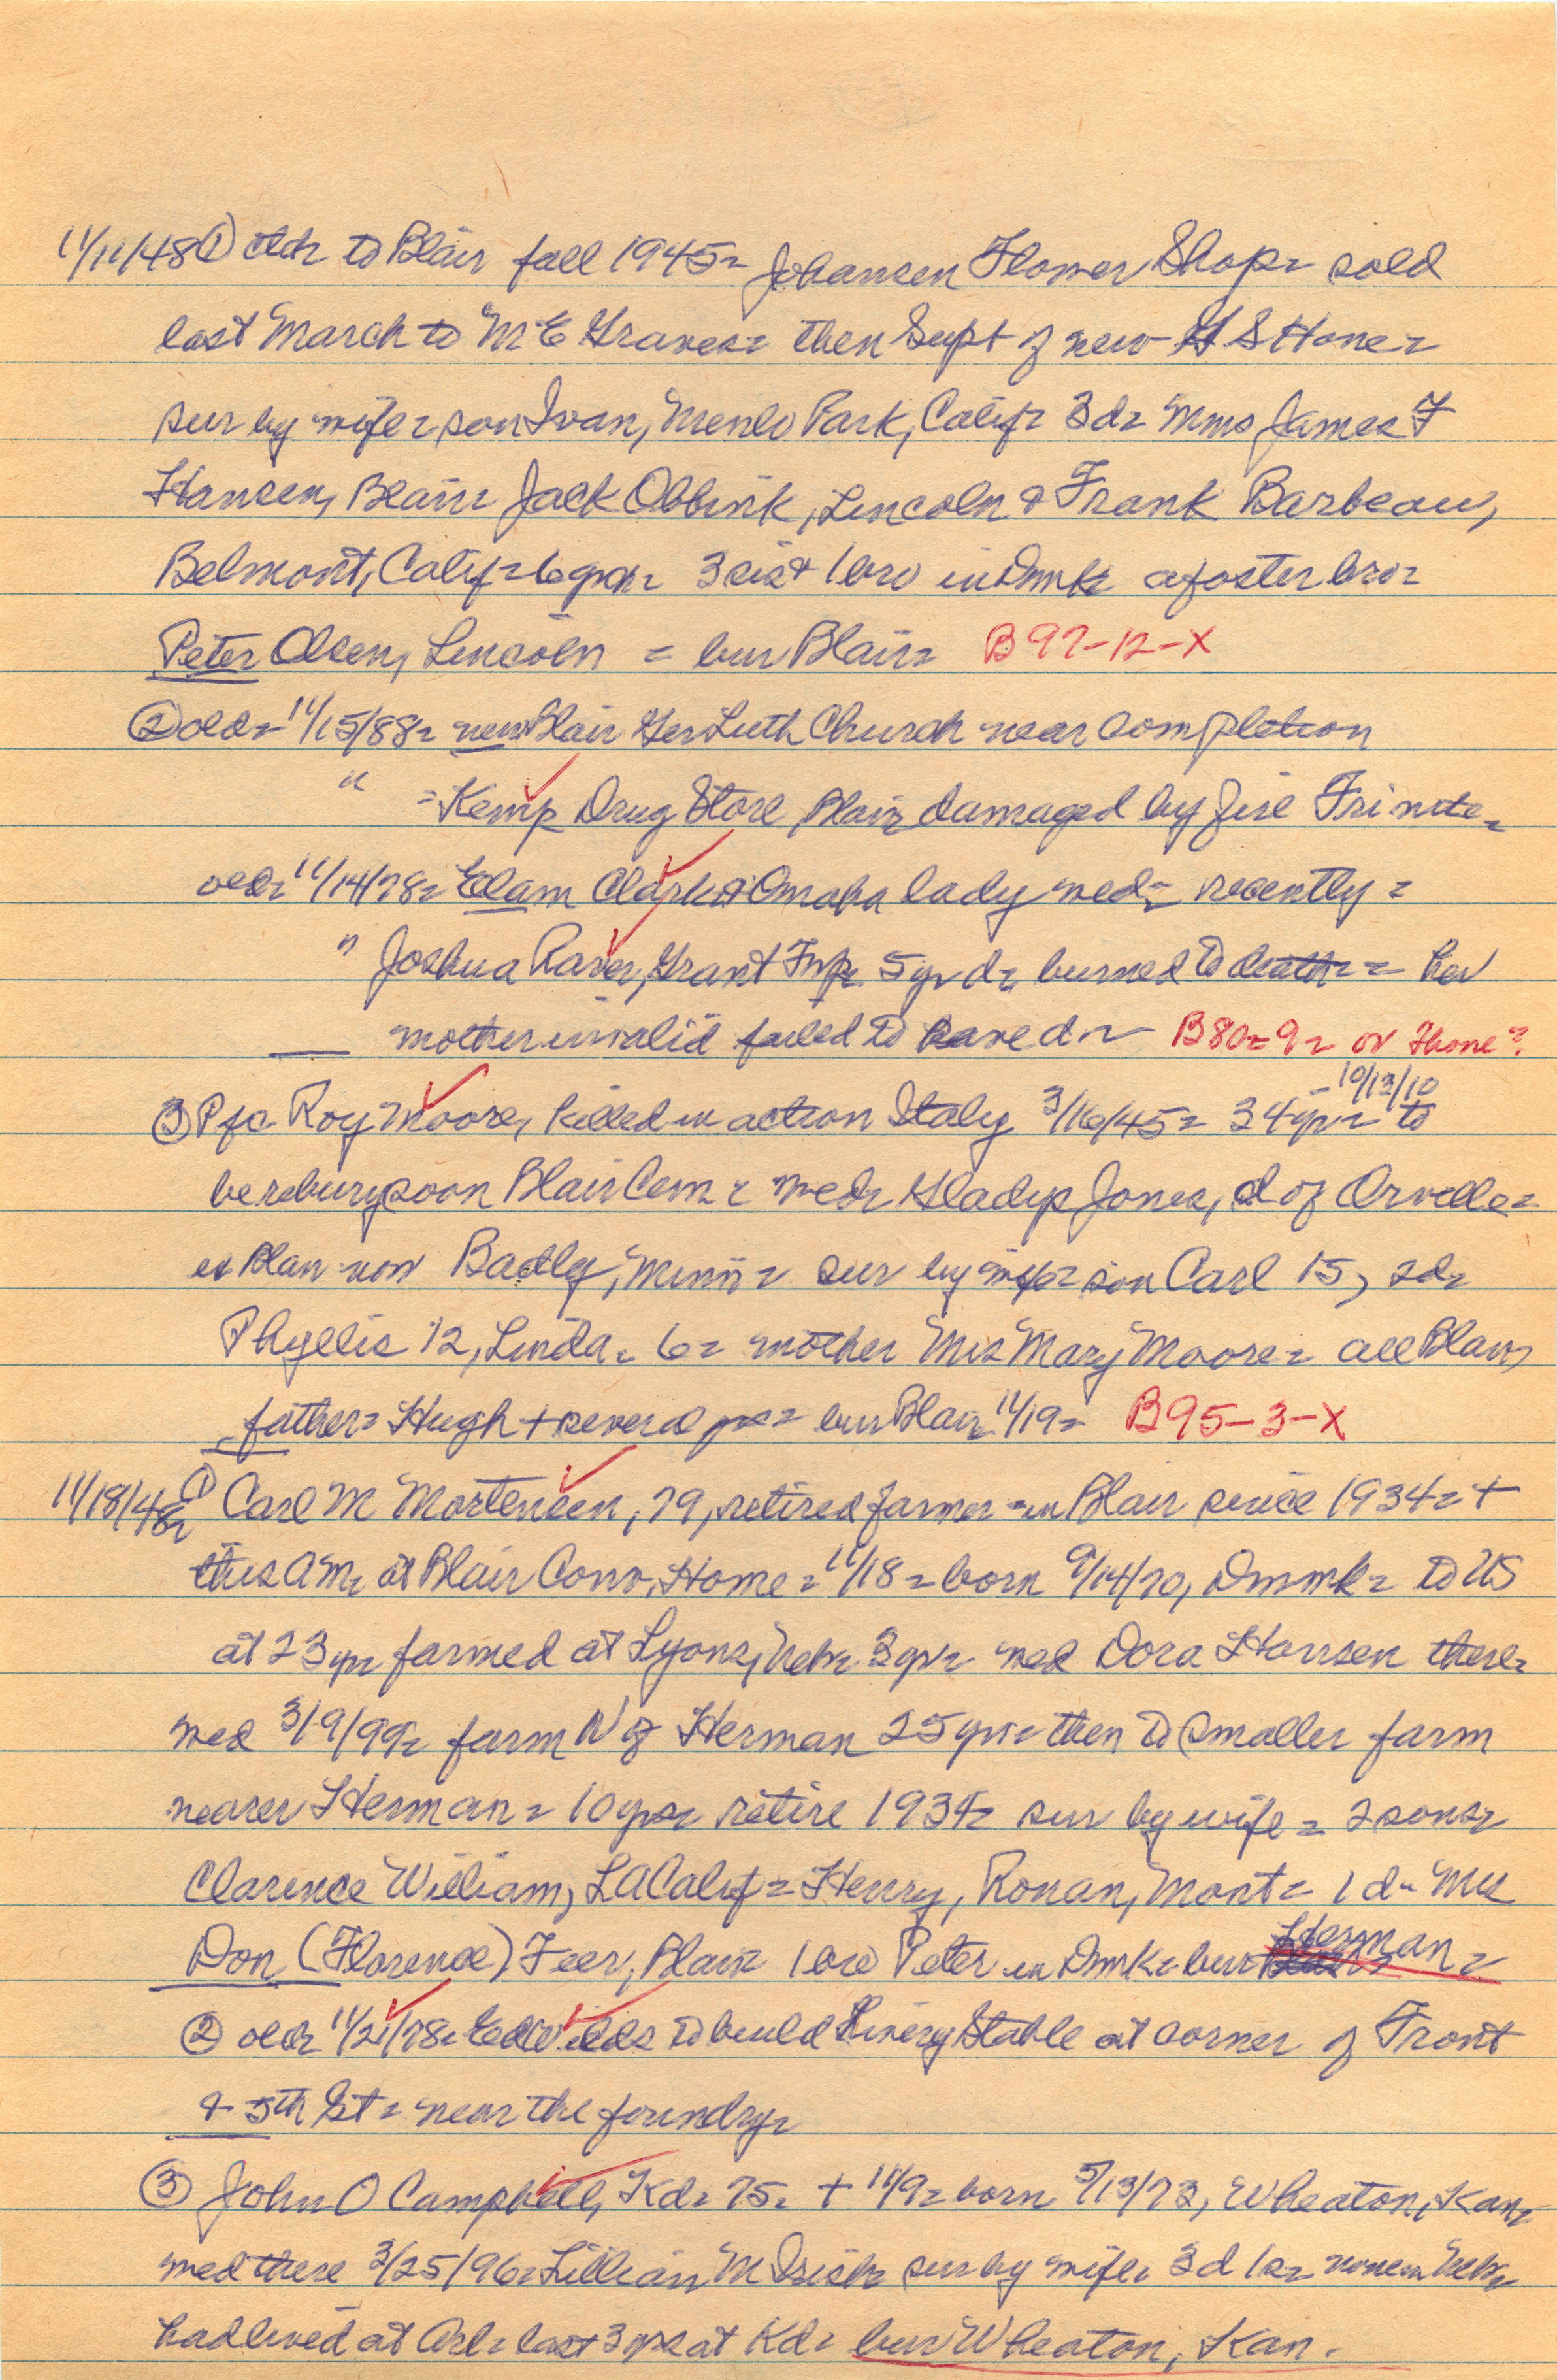 11/11/48 ① chch to Blair fall 1945= Johansen Flower Shop= sold
last March to M E Graves= then Supt of new G S Home=
sur by wife= son Ivan, Menlo Park, Calif= 3d= Mms James F
Hansen, Blair= Jack Obbink, Lincoln & Frank Barbeau,
Belmont, Calif= 6 gch= 3 sis + 1 bro in Dmk= a foster bro=
Peter Olsen, Lincoln = bur Blair= B97-12-X
② old= 11/15/88= new Blair Ger Luth Church near completion
" =Kemp Drug Store Blair damaged by fire Fri nite=
old= 11/14/78= Elam Clark & Omaha lady med= recently=
" Joshua Raver, Grant Twp= 5 yr d= burned to death= her
mother invalid failed to save d= B80=9= or Thone?
10/13/10
③ Pfc Roy Moore, killed in action Italy 3/16/45= 34 yr= to
be rebury soon Blair Cem= med= Gladys Jones, d of Orville=
ex Blair now Badly, Minn= sur by wife= son Carl 15, 2d=
Phyllis 12, Linda= 6= mother Mrs Mary Moore= all Blair,
father= Hugh + several = bur Blair 11/19= B95-3-X
11/18/48= ① Carl M Mortensen, 79, retired farmer =in Blair since 1934= +
this AM= at Blair Conv. Home= 11/18= born 9/14/70, Dmmk= to US
at 23 yr= farmed at Lyons, Nebr= 3 yr= med Dora Hansen there=
med 3/9/99= farm N of Herman 25 yr= then to smaller farm
nearer Herman= 10 yrs= retire 1934= sur by wife= 2 sons=
Clarence William, LA Calif= Henry, Ronan, Mont= 1 d= Mrs
Don (Florence) Feer, Blair= 1 bro Peter in Dmk= bur Herman=
② old= 11/21/78= Ed Wilds to build Livery Stable at corner of Front
& 5th St= near the foundry=
③ John O Campbell, Kd= 75= + 11/9= born 5/13/73, Wheaton, Kan=
med there 3/25/96= Lillian M Irish= sur by wife= 3d 1s= none in Nebr=
had lived at Arl= last 3 yrs at Kd= bur Wheaton, Kan.